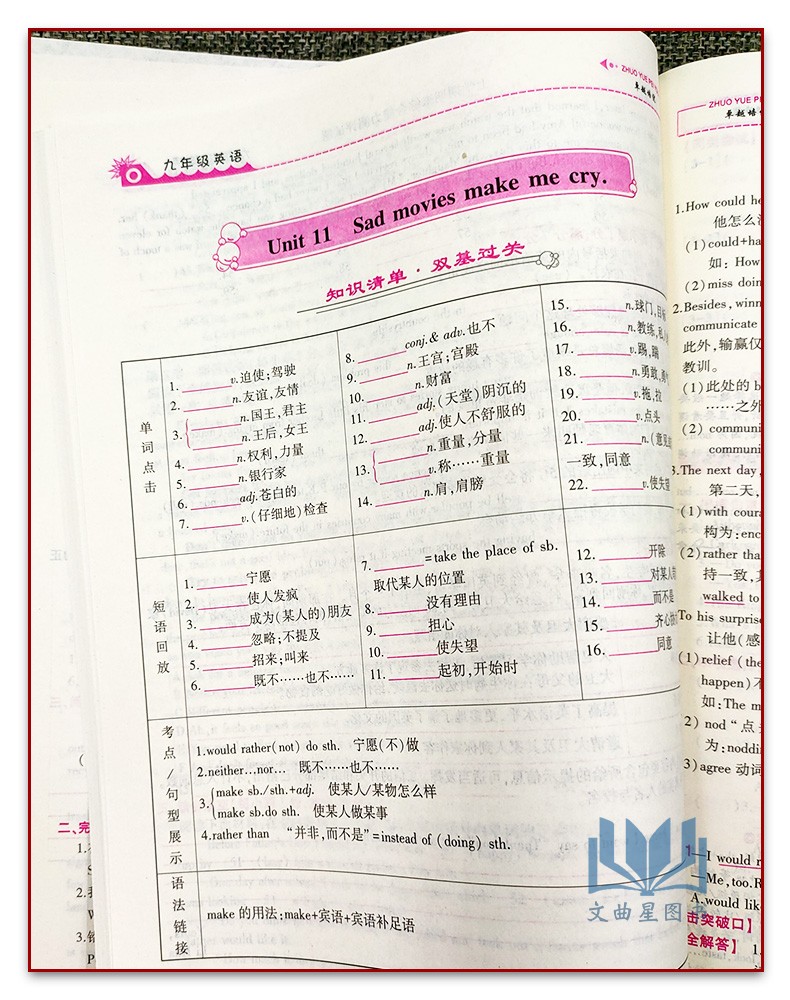 ZHUO YUE PE
卓越培
九年级英语
Unit 11 Sad movies make me cry.
知识清单·双基过关
单词点击
1.________v.迫使;驾驶
2.________n.友谊,友情
3.________n.国王,君主
________n.王后,女王
4.________n.权利,力量
5.________n.银行家
6.________adj.苍白的
7.________v.(仔细地)检查
8.________conj.& adv.也不
9.________n.王宫;宫殿
10.________n.财富
11.________adj.(天堂)阴沉的
12.________adj.使人不舒服的
13.________n.重量,分量
________v.称……重量
14.________n.肩,肩膀
15.________n.球门,目
16.________n.教练,私
17.________v.踢,踹
18.________n.勇敢,勇
19.________v.拖,拉
20.________v.点头
21.________n.(意见
一致,同意
22.________v.使失望
短语回放
1.________宁愿
2.________使人发疯
3.________成为(某人的)朋友
4.________忽略;不提及
5.________招来;叫来
6.________既不……也不……
7.________=take the place of sb.
取代某人的位置
8.________没有理由
9.________担心
10.________使失望
11.________起初,开始时
12.________开除
13.________对某人
14.________而不是
15.________齐心
16.________同意
考点/句型展示
1.would rather(not) do sth. 宁愿(不)做
2.neither…nor… 既不……也不……
3.make sb./sth.+adj. 使某人/某物怎么样
make sb.do sth. 使某人做某事
4.rather than “并非,而不是”=instead of (doing) sth.
语法链接
make 的用法;make+宾语+宾语补足语
ZHUO YUE P
卓越培
1.How could he
他怎么
(1)could+ha
如: How
(2)miss doin
2.Besides, winn
communicate
此外,输赢仅
教训。
(1)此处的 b
……之外
(2) communi
communi
3.The next day,
第二天,
(1)with coura
构为:enc
(2)rather tha
持一致,
walked to
To his surprise
让他(感
(1)relief (the
happen)不
如:The m
2) nod “点
为:noddin
3)agree 动词
1—I would r
—Me, too.R
A.would like
击突破口】
全解答】 1.
二、完
1.
S
2.
W
3.
P
文曲星图书